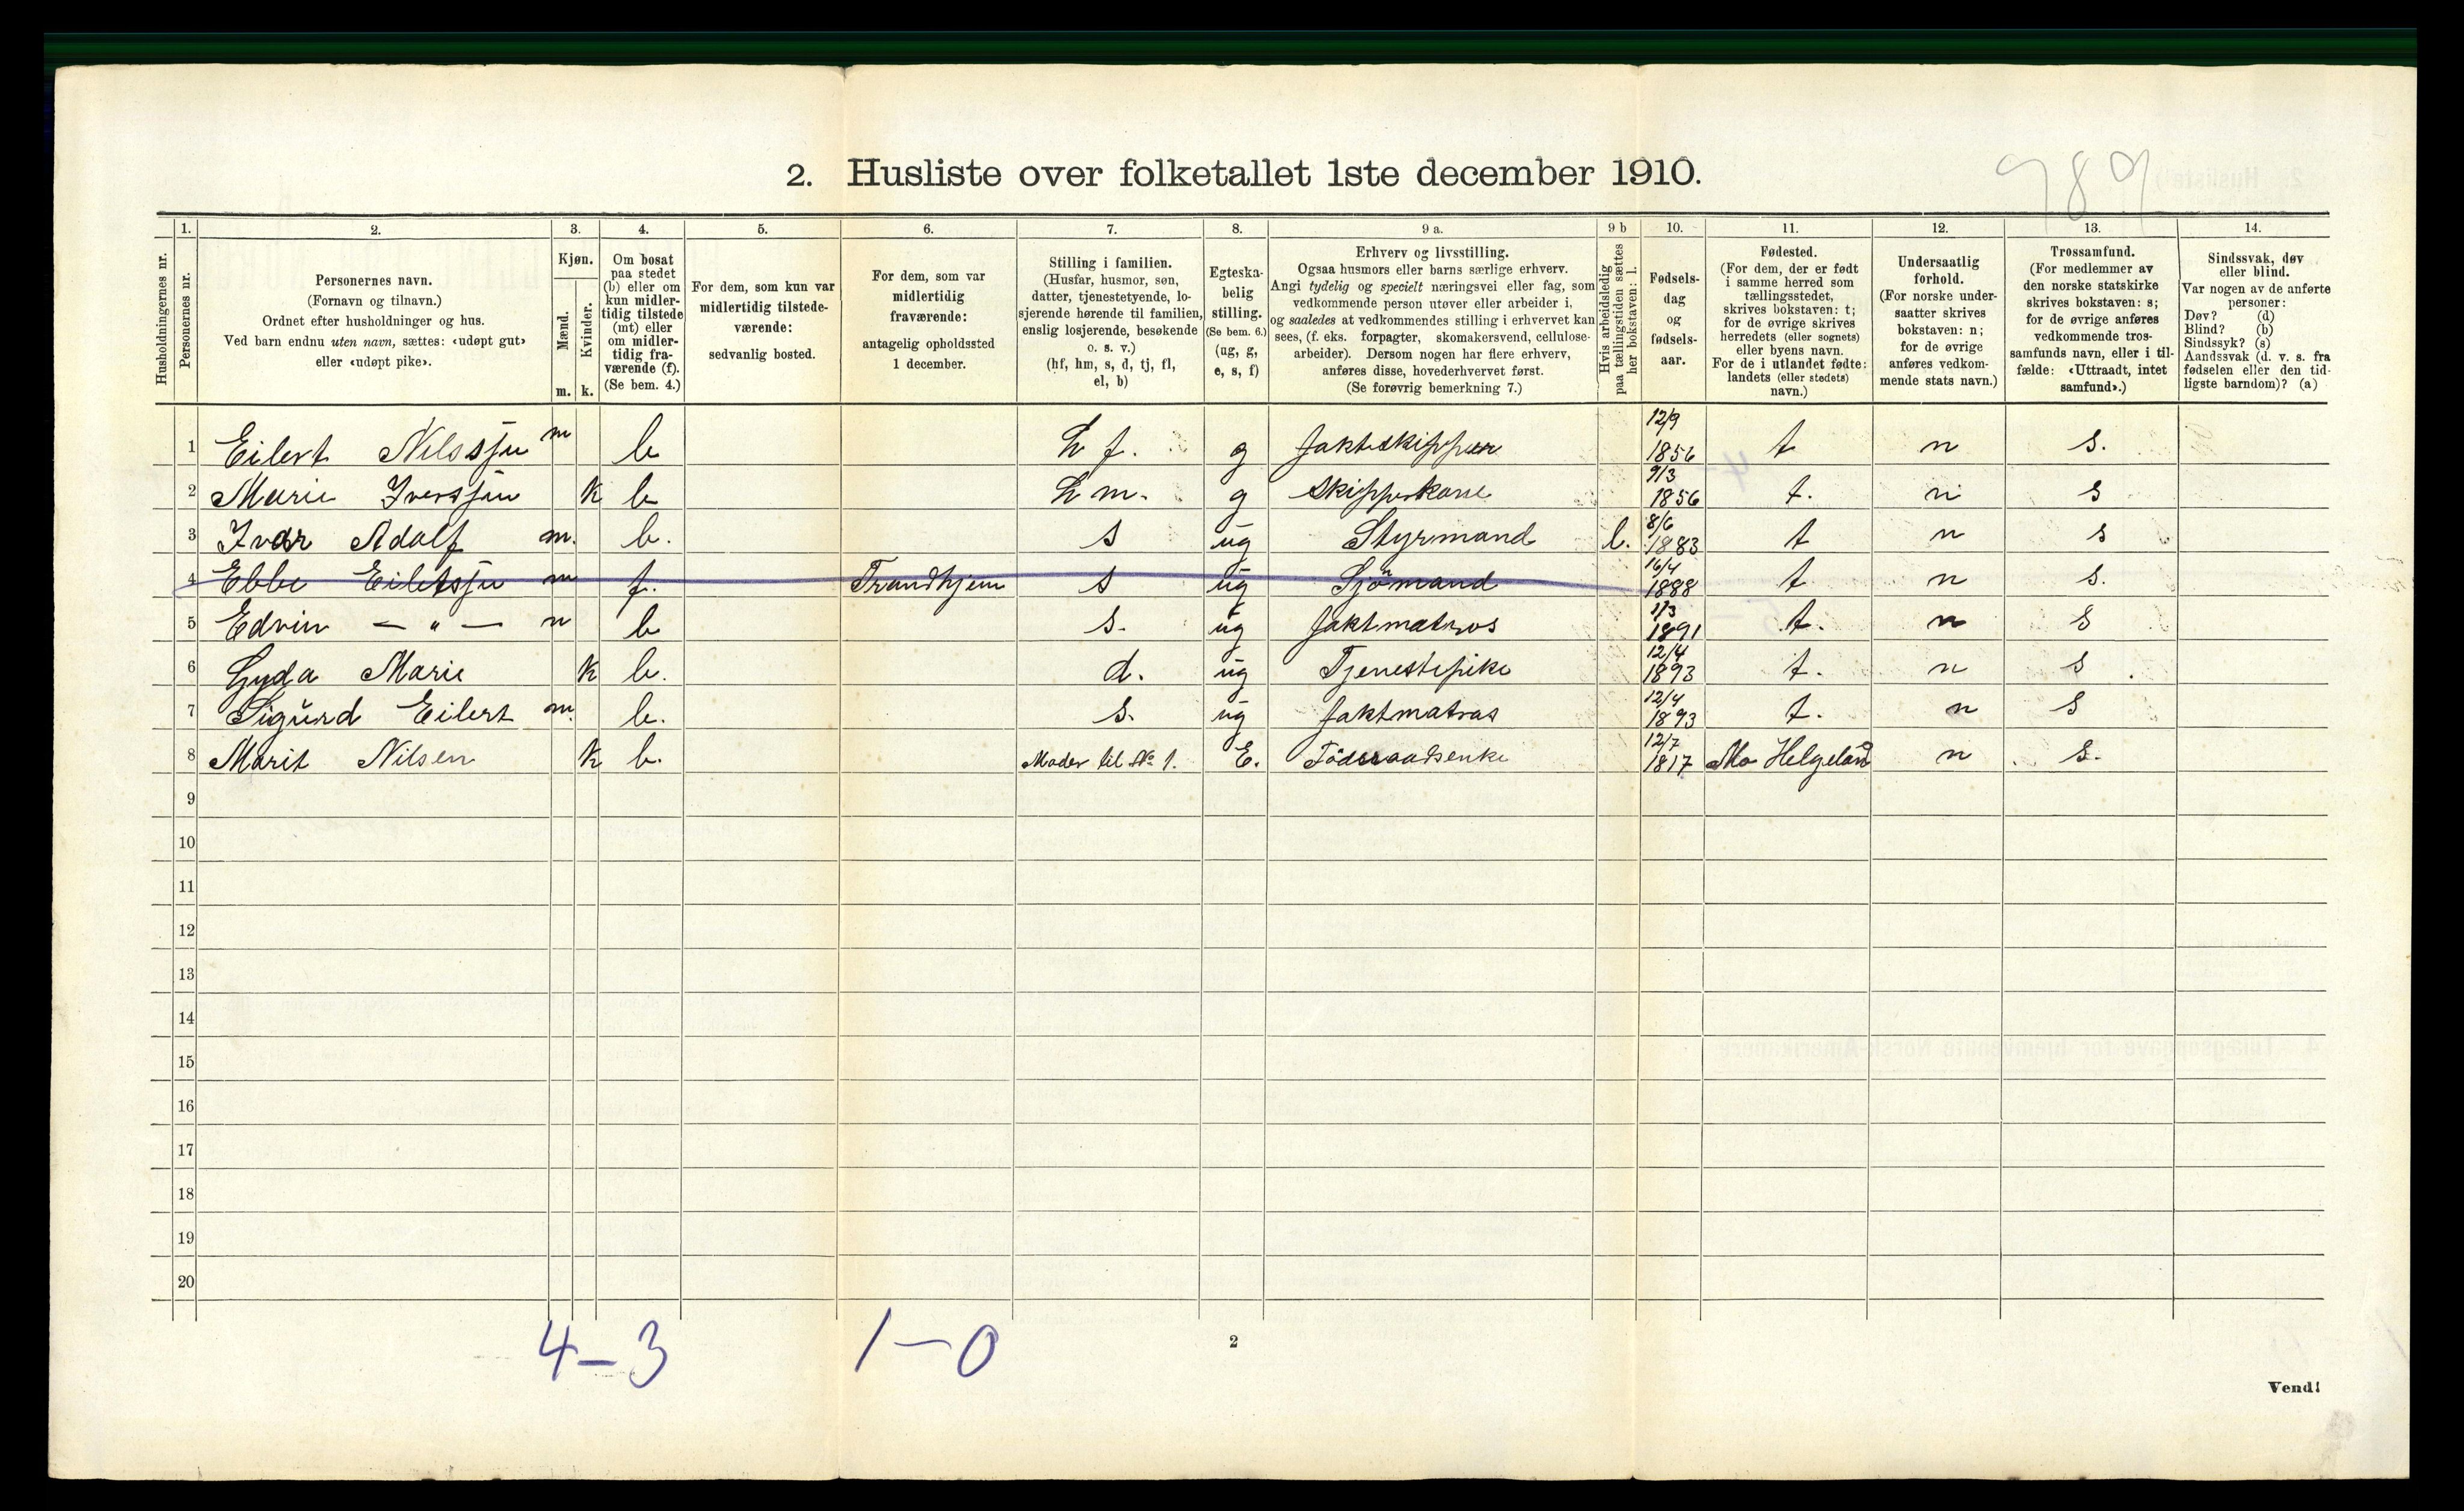 989
2. Husliste over folketallet 1ste december 1910.
Husholdningernes nr.
1. Personernes nr.
2. Personernes navn.
(Fornavn og tilnavn.)
Ordnet efter husholdninger og hus.
Ved barn endnu uten navn, sættes: «udøpt gut»
eller «udøpt pike».
3. Kjøn.
Mænd. m.
Kvinder. k.
4. Om bosat
paa stedet
(b) eller om
kun midler-
tidig tilstede
(mt) eller
om midler-
tidig fra-
værende (f).
(Se bem. 4.)
5. For dem, som kun var
midlertidig tilstede-
værende:
sedvanlig bosted.
6. For dem, som var
midlertidig
fraværende:
antagelig opholdssted
1 december.
7. Stilling i familien.
(Husfar, husmor, søn,
datter, tjenestetyende, lo-
sjerende hørende til familien,
enslig losjerende, besøkende
o. s. v.)
(hf, hm, s, d, tj, fl,
el, b)
8. Egteska-
belig
stilling.
(Se bem. 6.)
(ug, g,
e, s, f)
9 a. Erhverv og livsstilling.
Ogsaa husmors eller barns særlige erhverv.
Angi tydelig og specielt næringsvei eller fag, som
vedkommende person utøver eller arbeider i,
og saaledes at vedkommendes stilling i erhvervet kan
sees, (f. eks. forpagter, skomakersvend, cellulose-
arbeider). Dersom nogen har flere erhverv,
anføres disse, hovederhvervet først.
(Se forøvrig bemerkning 7.)
9 b Hvis arbeidsledig
paa tællingstiden sættes
her bokstaven: l.
10. Fødsels-
dag
og
fødsels-
aar.
11. Fødested.
(For dem, der er født
i samme herred som
tællingsstedet,
skrives bokstaven: t;
for de øvrige skrives
herredets (eller sognets)
eller byens navn.
For de i utlandet fødte:
landets (eller stedets)
navn.)
12. Undersaatlig
forhold.
(For norske under-
saatter skrives
bokstaven: n;
for de øvrige
anføres vedkom-
mende stats navn.)
13. Trossamfund.
(For medlemmer av
den norske statskirke
skrives bokstaven: s;
for de øvrige anføres
vedkommende tros-
samfunds navn, eller i til-
fælde: «Uttraadt, intet
samfund».)
14. Sindssvak, døv
eller blind.
Var nogen av de anførte
personer:
Døv? (d)
Blind? (b)
Sindssyk? (s)
Aandssvak (d. v. s. fra
fødselen eller den tid-
ligste barndom)? (a)
1 Eilert Nilssju m b h f. g Jakteskipper 12/9 1856 t n s.
2 Marie Iversju k b h m. g Skipperkone 9/3 1856 t. n s
3 Ivar Adolf m. b. s ug Styrmand l. 8/6 1883 t n s
4 Ebbe Eiletsju m f. Trondhjem s ug Sjömand 16/4 1888 t n s.
5 Edvin — " — m b s. ug Jaktmatros 1/3 1891 t. n s
6 Gyda Marie k b. d. ug Tjenestepike 12/4 1893 t. n s
7 Sigurd Eilert m. b. s. ug Jaktmatros 12/4 1893 t. n s
8 Marit Nilsen k b. Moder til No 1. E. Föderaadsenke 12/7 1817 Mo Helgeland n s.
9
10
11
12
13
14
15
16
17
18
19
20
4–3 1–0
2
Vend!